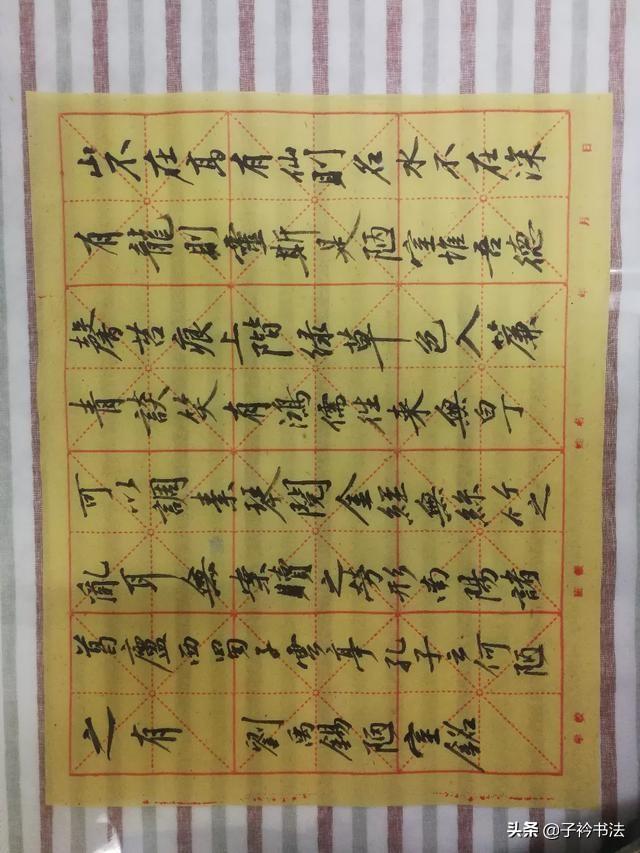 山不在高有仙則名水不在深
有龍則靈斯是陋室惟吾德
馨苔痕上階緑草色入簾
青談笑有鴻儒往来無白丁
可以調素琴閲金經無絲竹之
亂耳無案牘之勞形南陽諸
葛廬西蜀子雲亭孔子云何陋
之有 劉禹錫陋室銘
學校 班級 姓名 年 月 日
头条@子衿书法